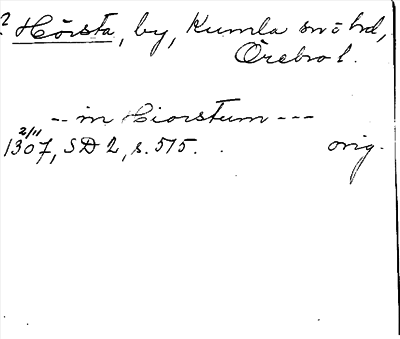 ? Hörsta, by, Kumla sn o hd,
Örebro l.
-- in Hiorstum ---
2/11
1307, SD 2, s. 515. orig.